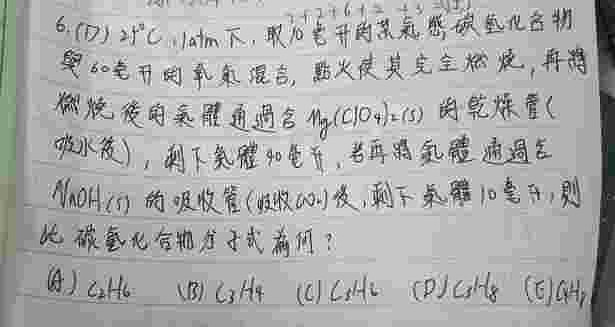 6.(D) 25°C, 1atm下, 取10毫升的某氣態碳氫化合物
與60毫升的氧氣混合, 點火使其完全燃燒, 再將
燃燒後的氣體通過含Mg(ClO4)2(s)的乾燥管(
吸水後), 剩下氣體40毫升, 若再將氣體通過含
NaOH(s)的吸收管(吸收CO2)後, 剩下氣體10毫升, 則
此碳氫化合物分子式為何?
(A) C2H6 (B) C3H4 (C) C3H6 (D) C3H8 (E)